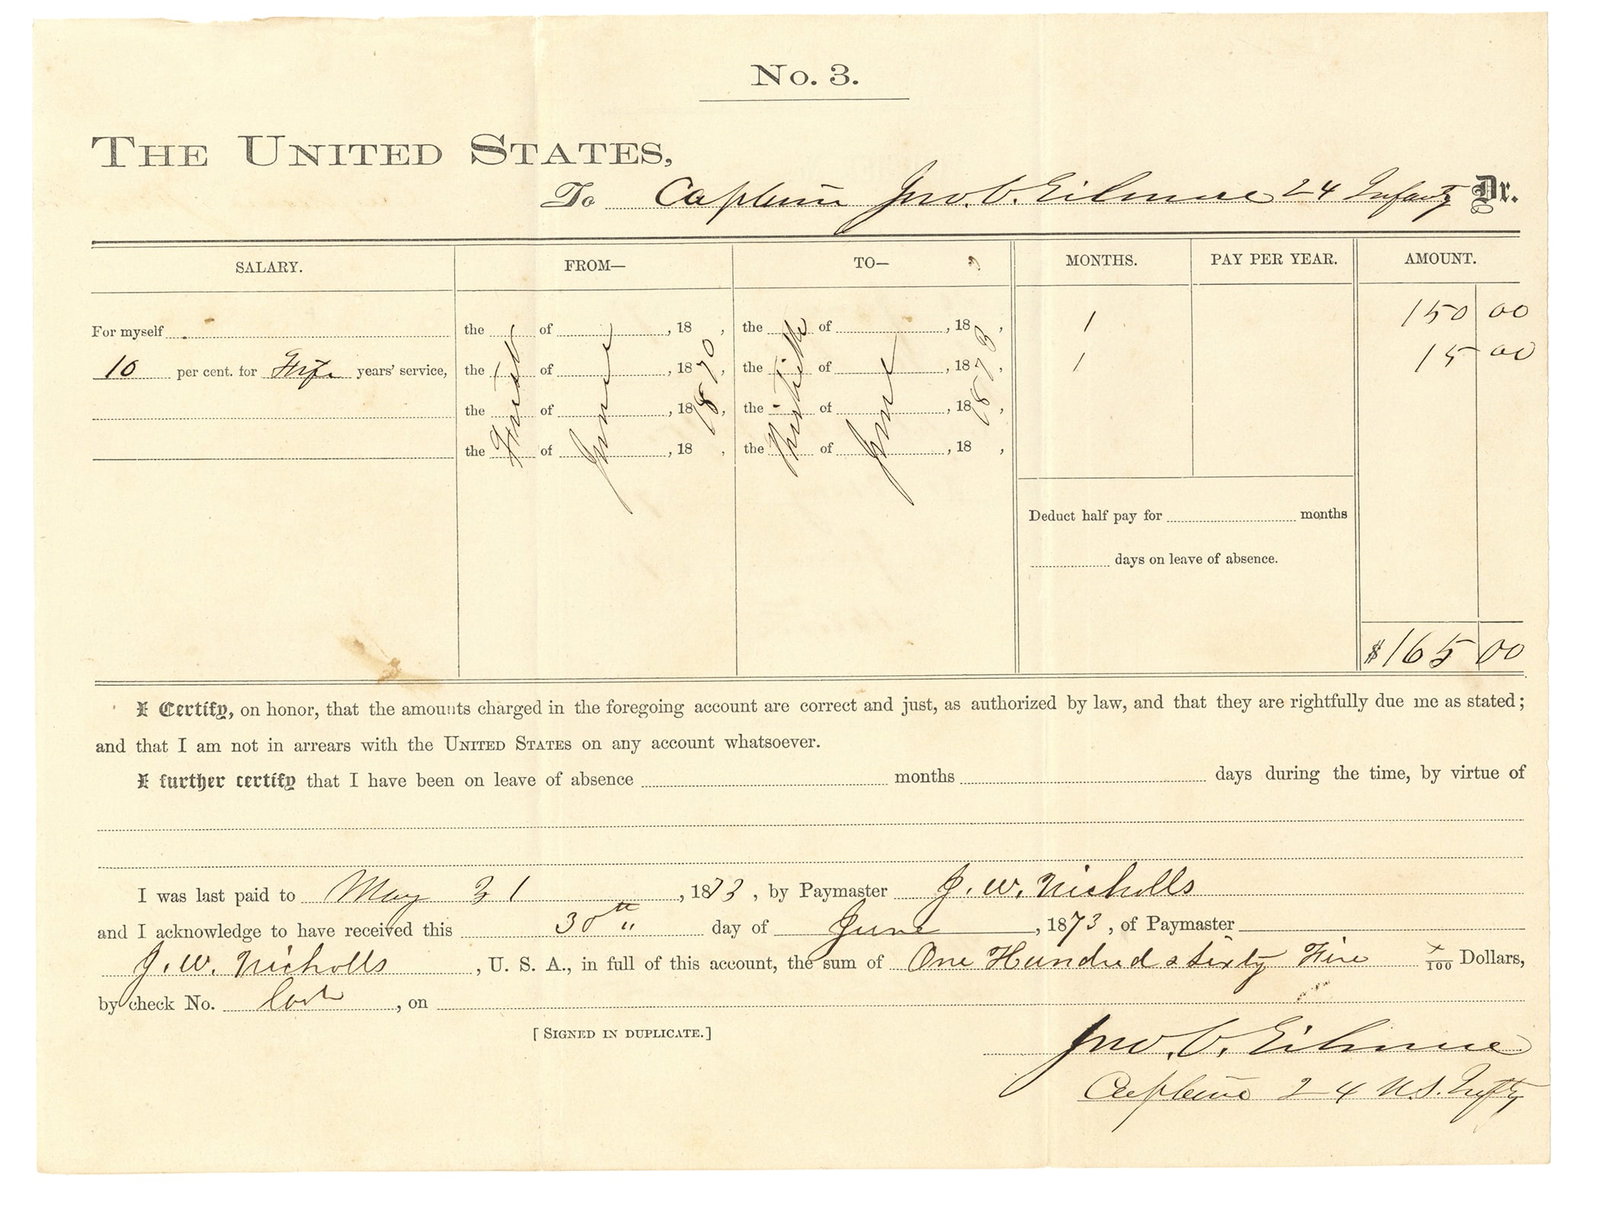 No. 3.
THE UNITED STATES,
To Captain Jno. C. Gilmore 24 Infanty Dr.
SALARY. FROM— TO— MONTHS. PAY PER YEAR. AMOUNT.
For myself the of , 18 , the of , 18 , 1 150 00
10 per cent. for Five years' service, the of , 18 , the of , 18 , 1 15 00
the of , 18 , the of , 18 ,
the of , 18 , the of , 18 ,
First June 1870 Thirtieth June 1873
Deduct half pay for months
days on leave of absence.
$165 00
I Certify, on honor, that the amounts charged in the foregoing account are correct and just, as authorized by law, and that they are rightfully due me as stated;
and that I am not in arrears with the UNITED STATES on any account whatsoever.
I further certify that I have been on leave of absence months days during the time, by virtue of
I was last paid to May 31 , 1873 , by Paymaster J. W. Nicholls
and I acknowledge to have received this 30th day of June , 1873 , of Paymaster
J. W. Nicholls , U. S. A., in full of this account, the sum of One Hundred & Sixty Five x/100 Dollars,
by check No. , on
[SIGNED IN DUPLICATE.]
Jno. C. Gilmore
Captain 24 U.S. Infty